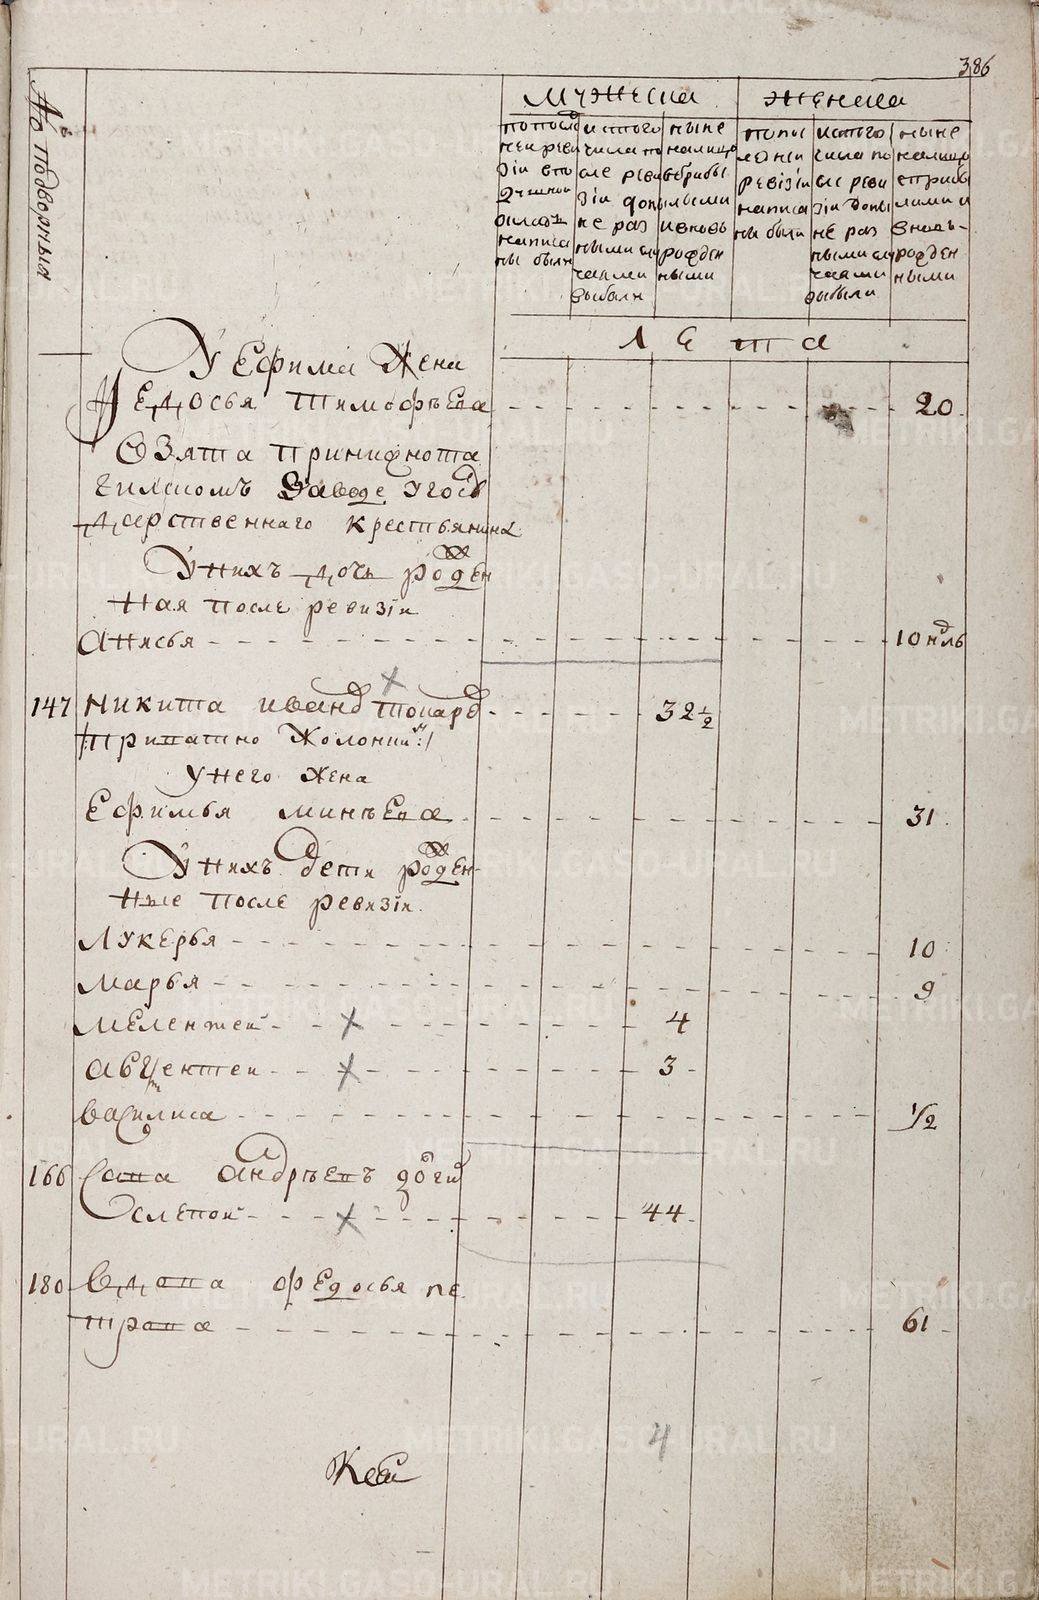 386
№ подворныя
Мужеска
Женска
по послѣдней ревизіи в подушной окладъ написаны были
и с того числа после ревизіи до ныне разными случаями выбыли
ныне налицо с прибылыми и вновь рожденными
по последней ревизіи написаны были
и с того числа после ревизіи до ныне разными случаями выбыли
ныне налицо с прибылыми и вновь рожденными
Лета
У Ефима жена
Федосья Тимофѣева 20
взята при нижнота
гилском заводе у госу
дарственнаго крестьянина
У нихъ дочь рожден
ная после ревизіи
анисья 10 нѣдль
147 Никита иванов токарев 32 1/2
/:припашно колонни:/
у него жена
Ефимья минѣева 31
У нихъ дети рожден
ные после ревизіи
Лукерья 10
марья 9
мелентей 4
авксентей 3
василиса 1/2
166 Сава андрѣевъ
слепой 44
180 вдова федосья пе
трова 61
4